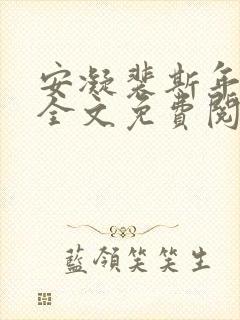 安凝裴斯年
全文免費閱
藍領笑笑生